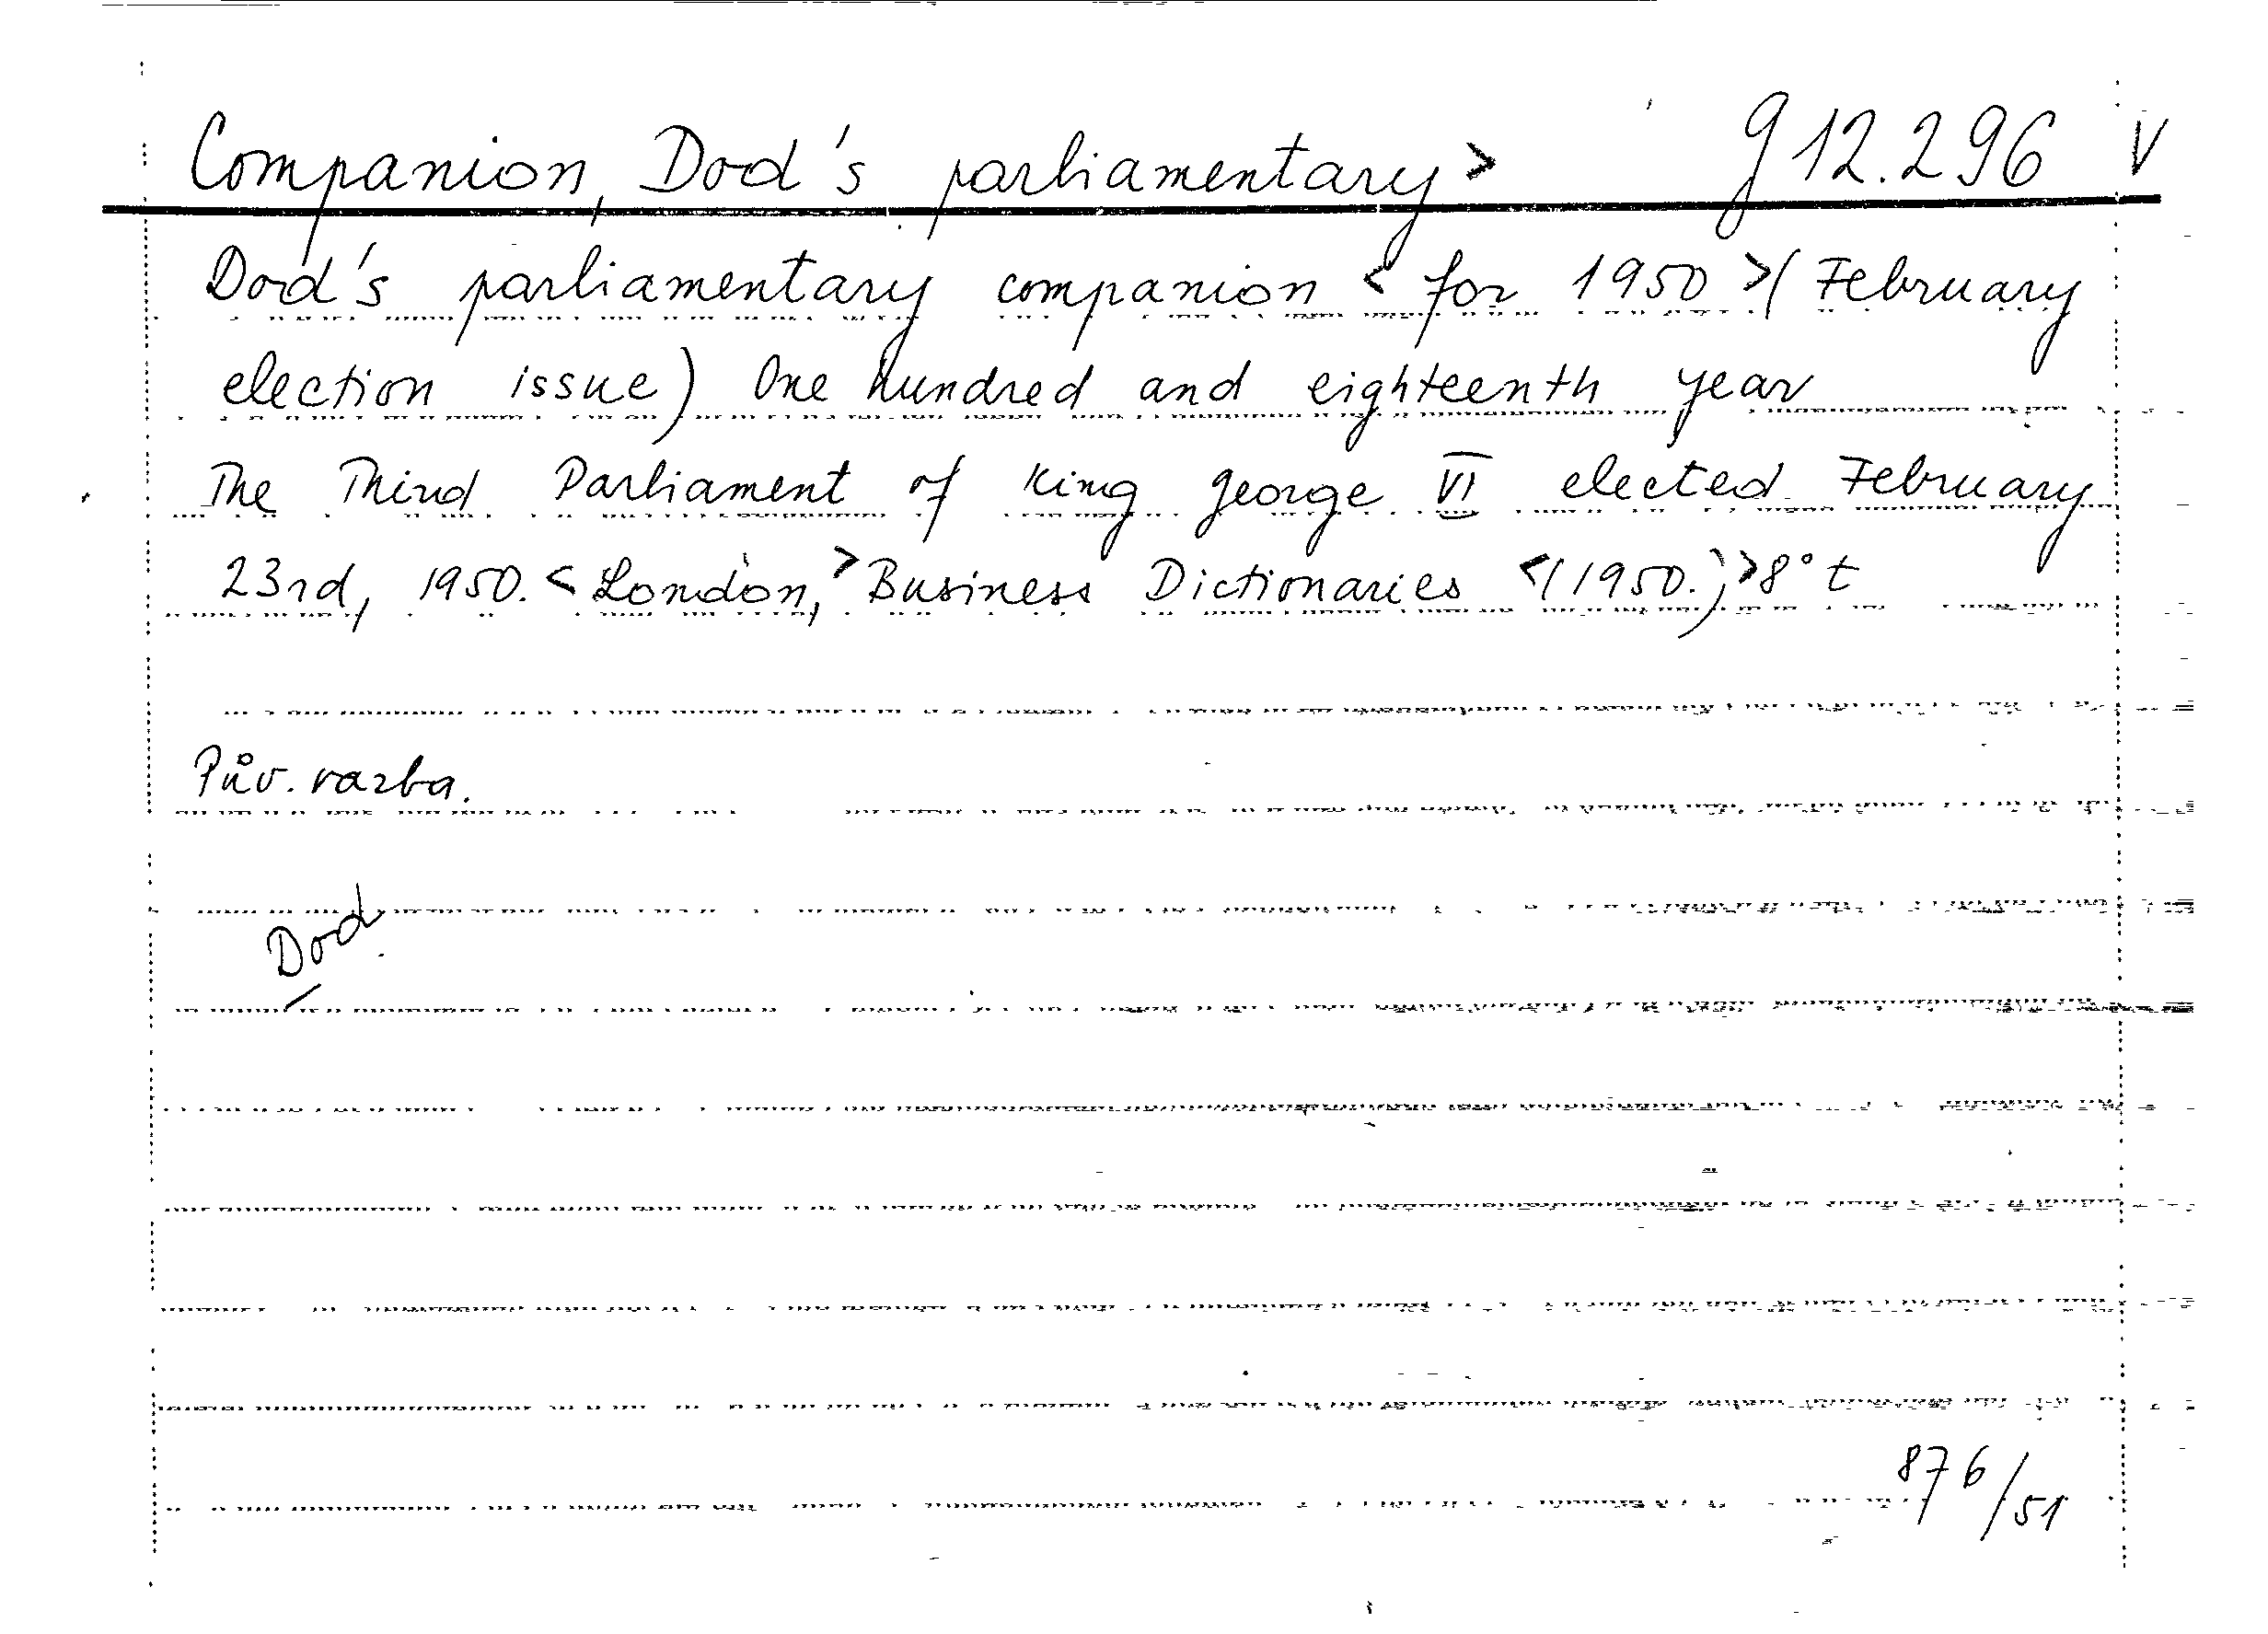 Companion, Dod's parliamentary > g 12.296 V
Dod's parliamentary companion < for 1950 > (February
election issue) One hundred and eighteenth year
The Third Parliament of King George VI elected February
23rd, 1950. < London, > Business Dictionaries < (1950.) > 8° t
Pův. vazba.
Dod
876/51